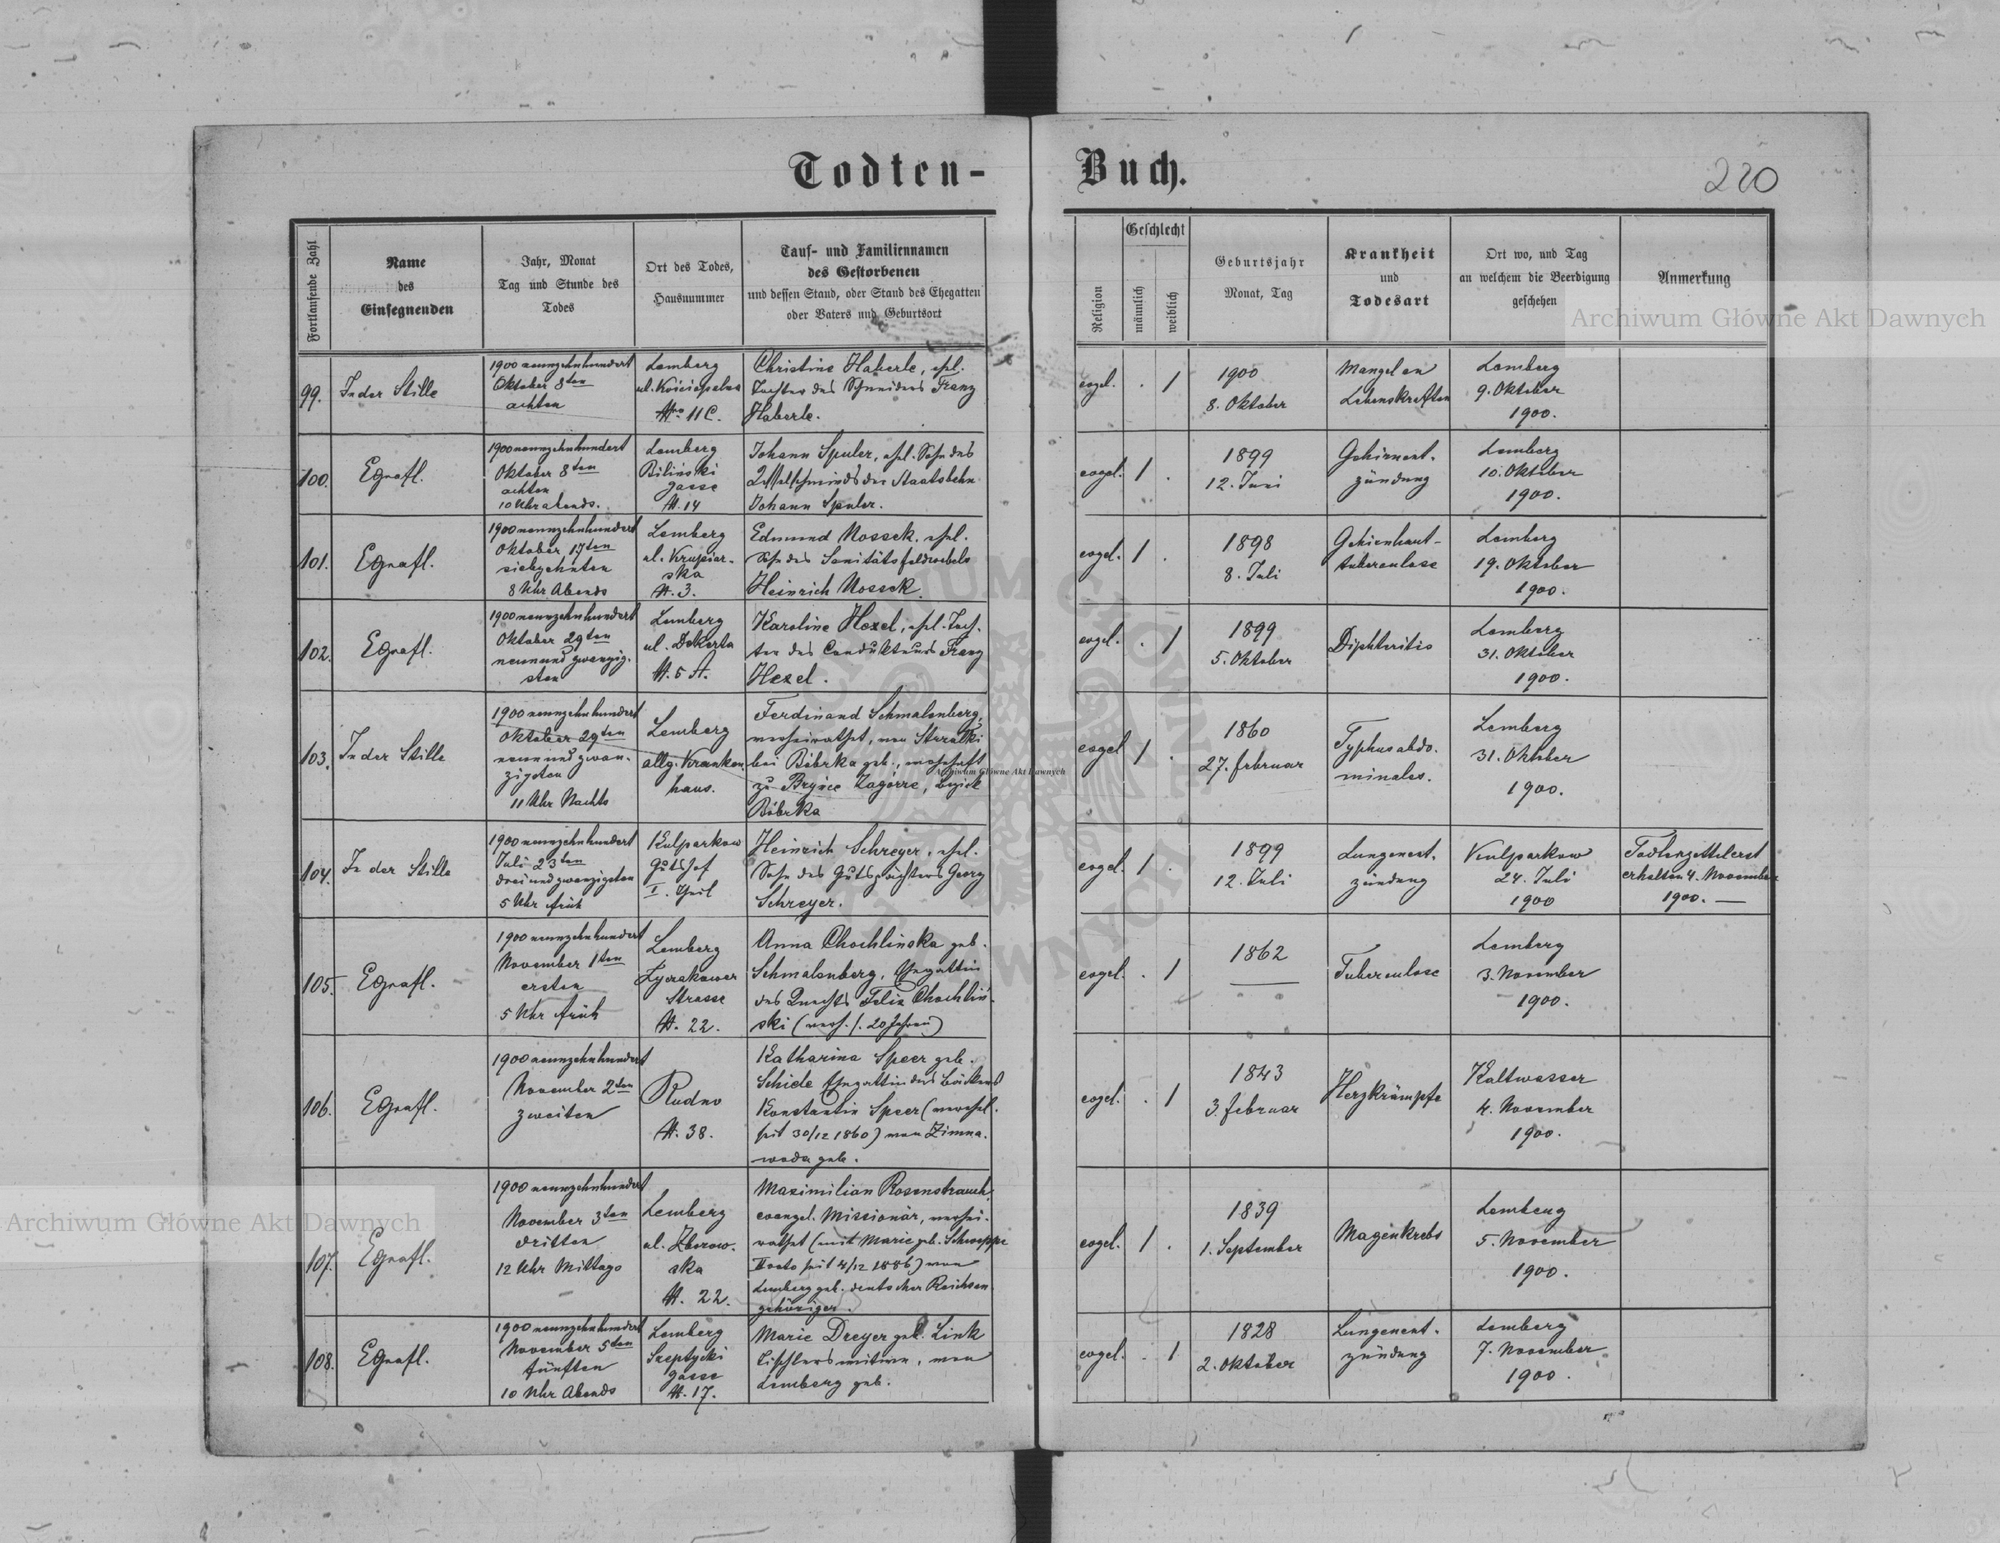 Todten-Buch.
220
Fortlaufende Zahl
Name
des
Einsegnenden
Jahr, Monat
Tag und Stunde des
Todes
Ort des Todes,
Hausnummer
Tauf- und Familiennamen
des Gestorbenen
und dessen Stand, oder Stand des Ehegatten
oder Vaters und Geburtsort
Religion
Geschlecht
männlich
weiblich
Geburtsjahr
Monat, Tag
Krankheit
und
Todesart
Ort wo, und Tag
an welchem die Beerdigung
geschehen
Anmerkung
99.
In der Stille
1900 neunzehnhundert
Oktober 8ten
achten
Lemberg
Nro 11 C.
Christine Haberle, ehel.
Tochter des Schneiders Franz
Haberle.
evgel. . 1
1900
8. Oktober
Mangel an
Lebenskraften
Lemberg
9. Oktober
1900.
100.
EGrafl.
1900 neunzehnhundert
Oktober 8ten
achten
10 Uhr abends.
Lemberg
Biliński
gasse
N. 14
Johann Spuler, ehel. Sohn des
der Staatsbahn
Johann Spuler.
evgel. 1 .
1899
12. Juni
Gehirnent-
zündung
Lemberg
10. Oktober
1900.
101.
EGrafl.
1900 neunzehnhundert
Oktober 17ten
siebzehnten
8 Uhr Abends
Lemberg
ul. Krupiar-
ska
N. 3.
Edmund Mosseck, ehel.
Sohn des Sanitätsfeldwebels
Heinrich Mosseck.
evgel. 1 .
1898
8. Juli
Gehirnhaut-
tuberculose
Lemberg
19. Oktober
1900.
102.
EGrafl.
1900 neunzehnhundert
Oktober 29ten
neunundzwanzig-
sten
Lemberg
ul. Dekerta
N. 5 A.
Karoline Hexel, ehel. Toch-
ter des Condukteurs Franz
Hexel.
evgel. . 1
1899
5. Oktober
Diphteritis
Lemberg
31. Oktober
1900.
103.
In der Stille
1900 neunzehnhundert
Oktober 29ten
neunundzwan-
zigsten
11 Uhr Nachts
Lemberg
allg. Kranken
haus.
Ferdinand Schmalenberg,
verheirathet, von Strzałki
bei Bóbrka geb., wohnhaft
zu Bryńce Zagórne, Bezirk
Bóbrka
evgel 1 .
1860
27. Februar
Typhus abdo-
minales.
Lemberg
31. Oktober
1900.
104.
In der Stille
1900 neunzehnhundert
Juli 23ten
dreiundzwanzigsten
5 Uhr früh
Kulparkow
Gutshof
I. Theil
Heinrich Schreyer, ehel.
Sohn des Gutspächters Georg
Schreyer.
evgel. 1 .
1899
12. Juli
Lungenent-
zündung
Kulparkow
24. Juli
1900
Todtenzettel erst
erhalten 4. November
1900. —
105.
EGrafl.
1900 neunzehnhundert
November 1ten
ersten
5 Uhr früh
Lemberg
Łyczakower
Strasse
N. 22.
Anna Chochlinska geb.
Schmalenberg, Ehegattin
des Knechts Felix Chochliń-
ski (verh. s. 20 Jahren)
evgel. . 1
1862
Tuberculose
Lemberg
3. November
1900.
106.
EGrafl.
1900 neunzehnhundert
November 2ten
zweiten
Rudno
N. 38.
Katharina Speer geb.
Schiele Ehegattin des Bäckers
Konstantin Speer (verehel.
seit 30/12 1860) von Zimna-
woda geb.
evgel. . 1
1843
3. Februar
Herzkrämpfe
Kaltwasser
4. November
1900.
107.
EGrafl.
1900 neunzehnhundert
November 3ten
dritten
12 Uhr Mittags
Lemberg
ul. Zborow-
ska
N. 22.
Maximilian Rosenstrauch,
evangel. Missionär, verhei-
rathet (mit Marie geb. Schweppe
seit 4/12 1886) von
Lemberg geb. deutscher Reichsan-
gehöriger.
evgel. 1 .
1839
1. September
Magenkrebs
Lemberg
5. November
1900.
108.
EGrafl.
1900 neunzehnhundert
November 5ten
fünften
10 Uhr Abends
Lemberg
Szeptycki
gasse
N. 17.
Marie Dreyer geb. Link
Tischlerswitwe, von
Lemberg geb.
evgel. . 1
1828
2. Oktober
Lungenent-
zündung
Lemberg
7. November
1900.
Archiwum Główne Akt Dawnych
Archiwum Główne Akt Dawnych
Archiwum Główne Akt Dawnych